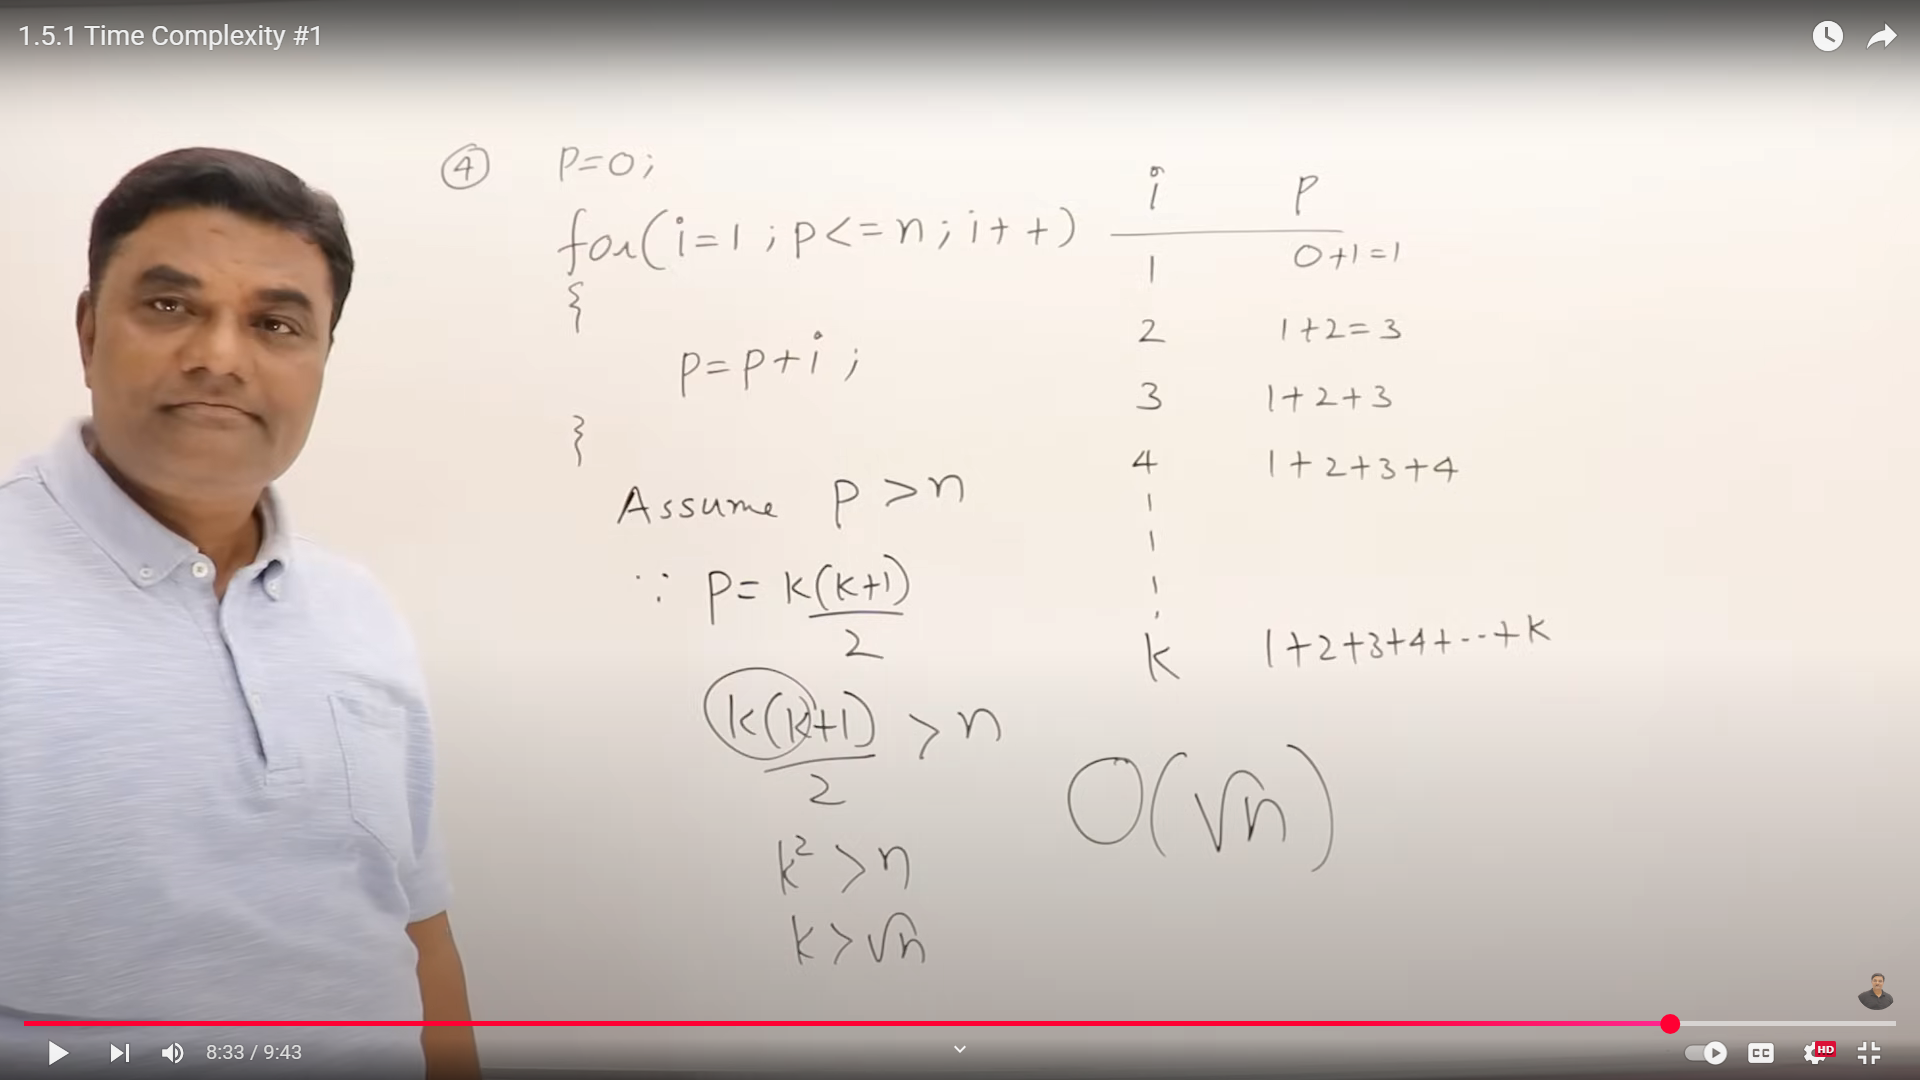 1.5.1 Time Complexity #1
④ P=0;
for(i=1;p<=n;i++)
{
p=p+i;
}
Assume p>n
∵ p= k(k+1)
2
k(k+1) > n
2
k² > n
k > √n
i p
1 0+1=1
2 1+2=3
3 1+2+3
4 1+2+3+4
k 1+2+3+4+--+k
O(√n)
8:33 / 9:43
CC
HD